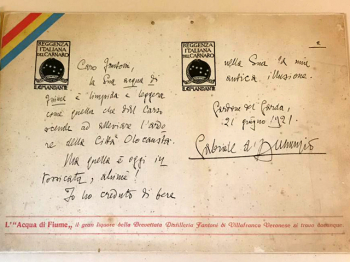 REGGENZA
ITALIANA
DEL CARNARO
Caro Fantoni,
la Sua acqua di
fiume è limpida e leggera
come quella che dal Carso
scende ad alleviare l'ardo
re della Città Olocausta.
Ma quella è oggi in
torbidata, ahimè!
Io ho creduto di bere
REGGENZA
ITALIANA
DEL CARNARO
nella Sua la mia
antica illusione.
Gardone del Garda,
21 giugno 1921.
Gabriele d'Annunzio
L'"Acqua di Fiume„ il gran liquore della Brevettata Distilleria Fantoni di Villafranca Veronese si trova dovunque.